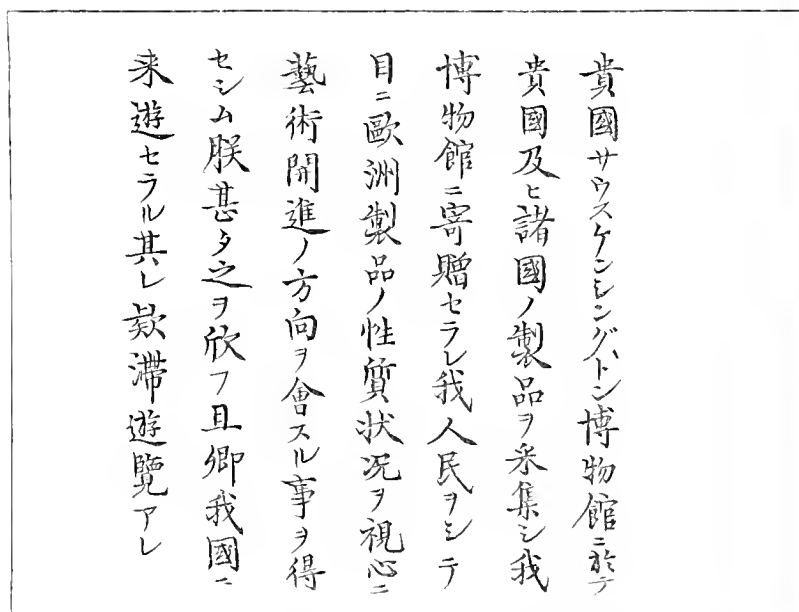 貴國サウスケンシングハトン博物館ニ於テ
貴國及ヒ諸國ノ製品ヲ采集シ我
博物館ニ寄贈セラレ我人民ヲシテ
目ニ歐洲製品ノ性質状况ヲ視心ニ
藝術開進ノ方向ヲ會スル事ヲ得
セシム朕甚タ之ヲ欣フ且卿我國ニ
来遊セラル其レ欵滯遊覽アレ